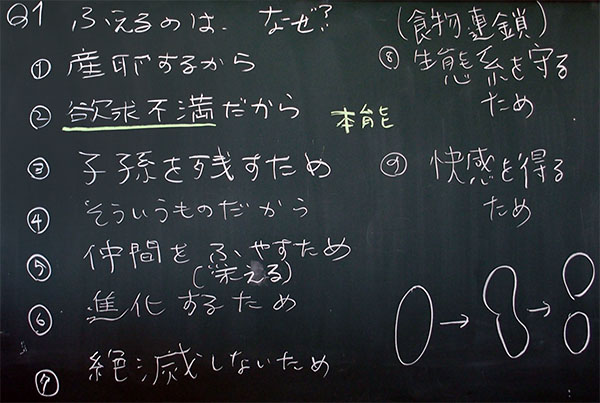 Q1 ふえるのは、なぜ?
① 産卵するから
② 欲求不満だから 本能
③ 子孫を残すため
④ そういうものだから
⑤ 仲間をふやすため
(栄える)
⑥ 進化するため
⑦ 絶滅しないため
(食物連鎖)
⑧ 生態系を守る
ため
⑨ 快感を得る
ため